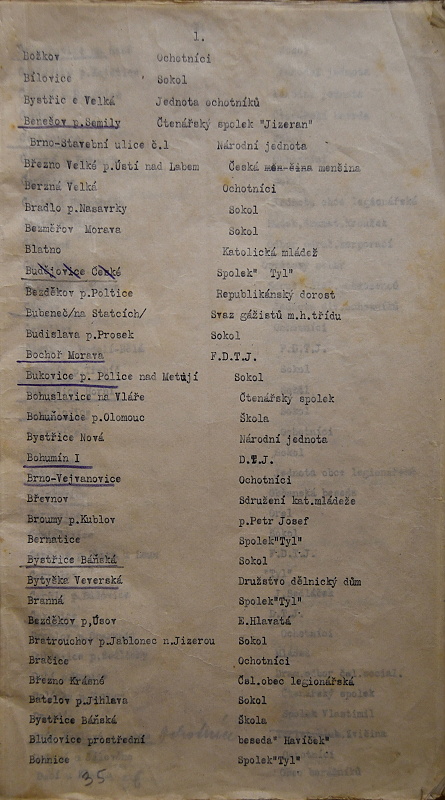 1.
Božkov Ochotníci
Bílovice Sokol
Bystřic e Velká Jednota ochotníků
Benešov p.Semily Čtenářský spolek "Jizeran"
Brno-Stavební ulice č.1 Národní jednota
Březno Velké p.Ústí nad Labem Česká menčina
Berzná Velká Ochotníci
Bradlo p.Nasavrky Sokol
Bezměřov Morava Sokol
Blatno Katolická mládež
Budějovice České Spolek" Tyl"
Bezděkov p.Poltice Republikánský dorost
Bubeneč/na Statcích/ Svaz gážistů m.h.třídu
Budislava p.Prosek Sokol
Bochoř Morava F.D.T.J.
Bukovice p. Police nad Metují Sokol
Bohuslavice na Vláře Čtenářský spolek
Bohuňovice p.Olomouc Škola
Bystřice Nová Národní jednota
Bohumín I D.T.J.
Brno-Vejvanovice Ochotníci
Břevnov Sdružení kat.mládeže
Broumy p.Kublov p.Petr Josef
Bernatice Spolek"Tyl"
Bystřice Báňská Sokol
Bytyška Veverská Družstvo dělnický dům
Branná Spolek"Tyl"
Bezděkov p,Úsov E.Hlavatá
Bratrouchov p.Jablonec n.Jizerou Sokol
Bračice Ochotníci
Březno Krásné Čsl.obec legionářská
Batelov p.Jihlava Sokol
Bystřice Báňská Škola
Bludovice prostřední beseda" Havíček"
Bohnice Spolek"Tyl"
35